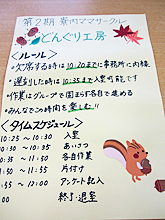 第2期 寮内ママサークル
どんぐり工房
<ルール>
●欠席する時は10:20までに事務所に内線
●遅刻した時は10:35まで入室可能です
●作業はグループで固まらず各自で進める
●みんなでこの時間を楽しむ!!
<タイムスケジュール>
10:25 〜 10:30 入室
10:35 あいさつ
11:10 各自作業
11:15 片付け
11:30 アンケート記入
11:30 終了・退室